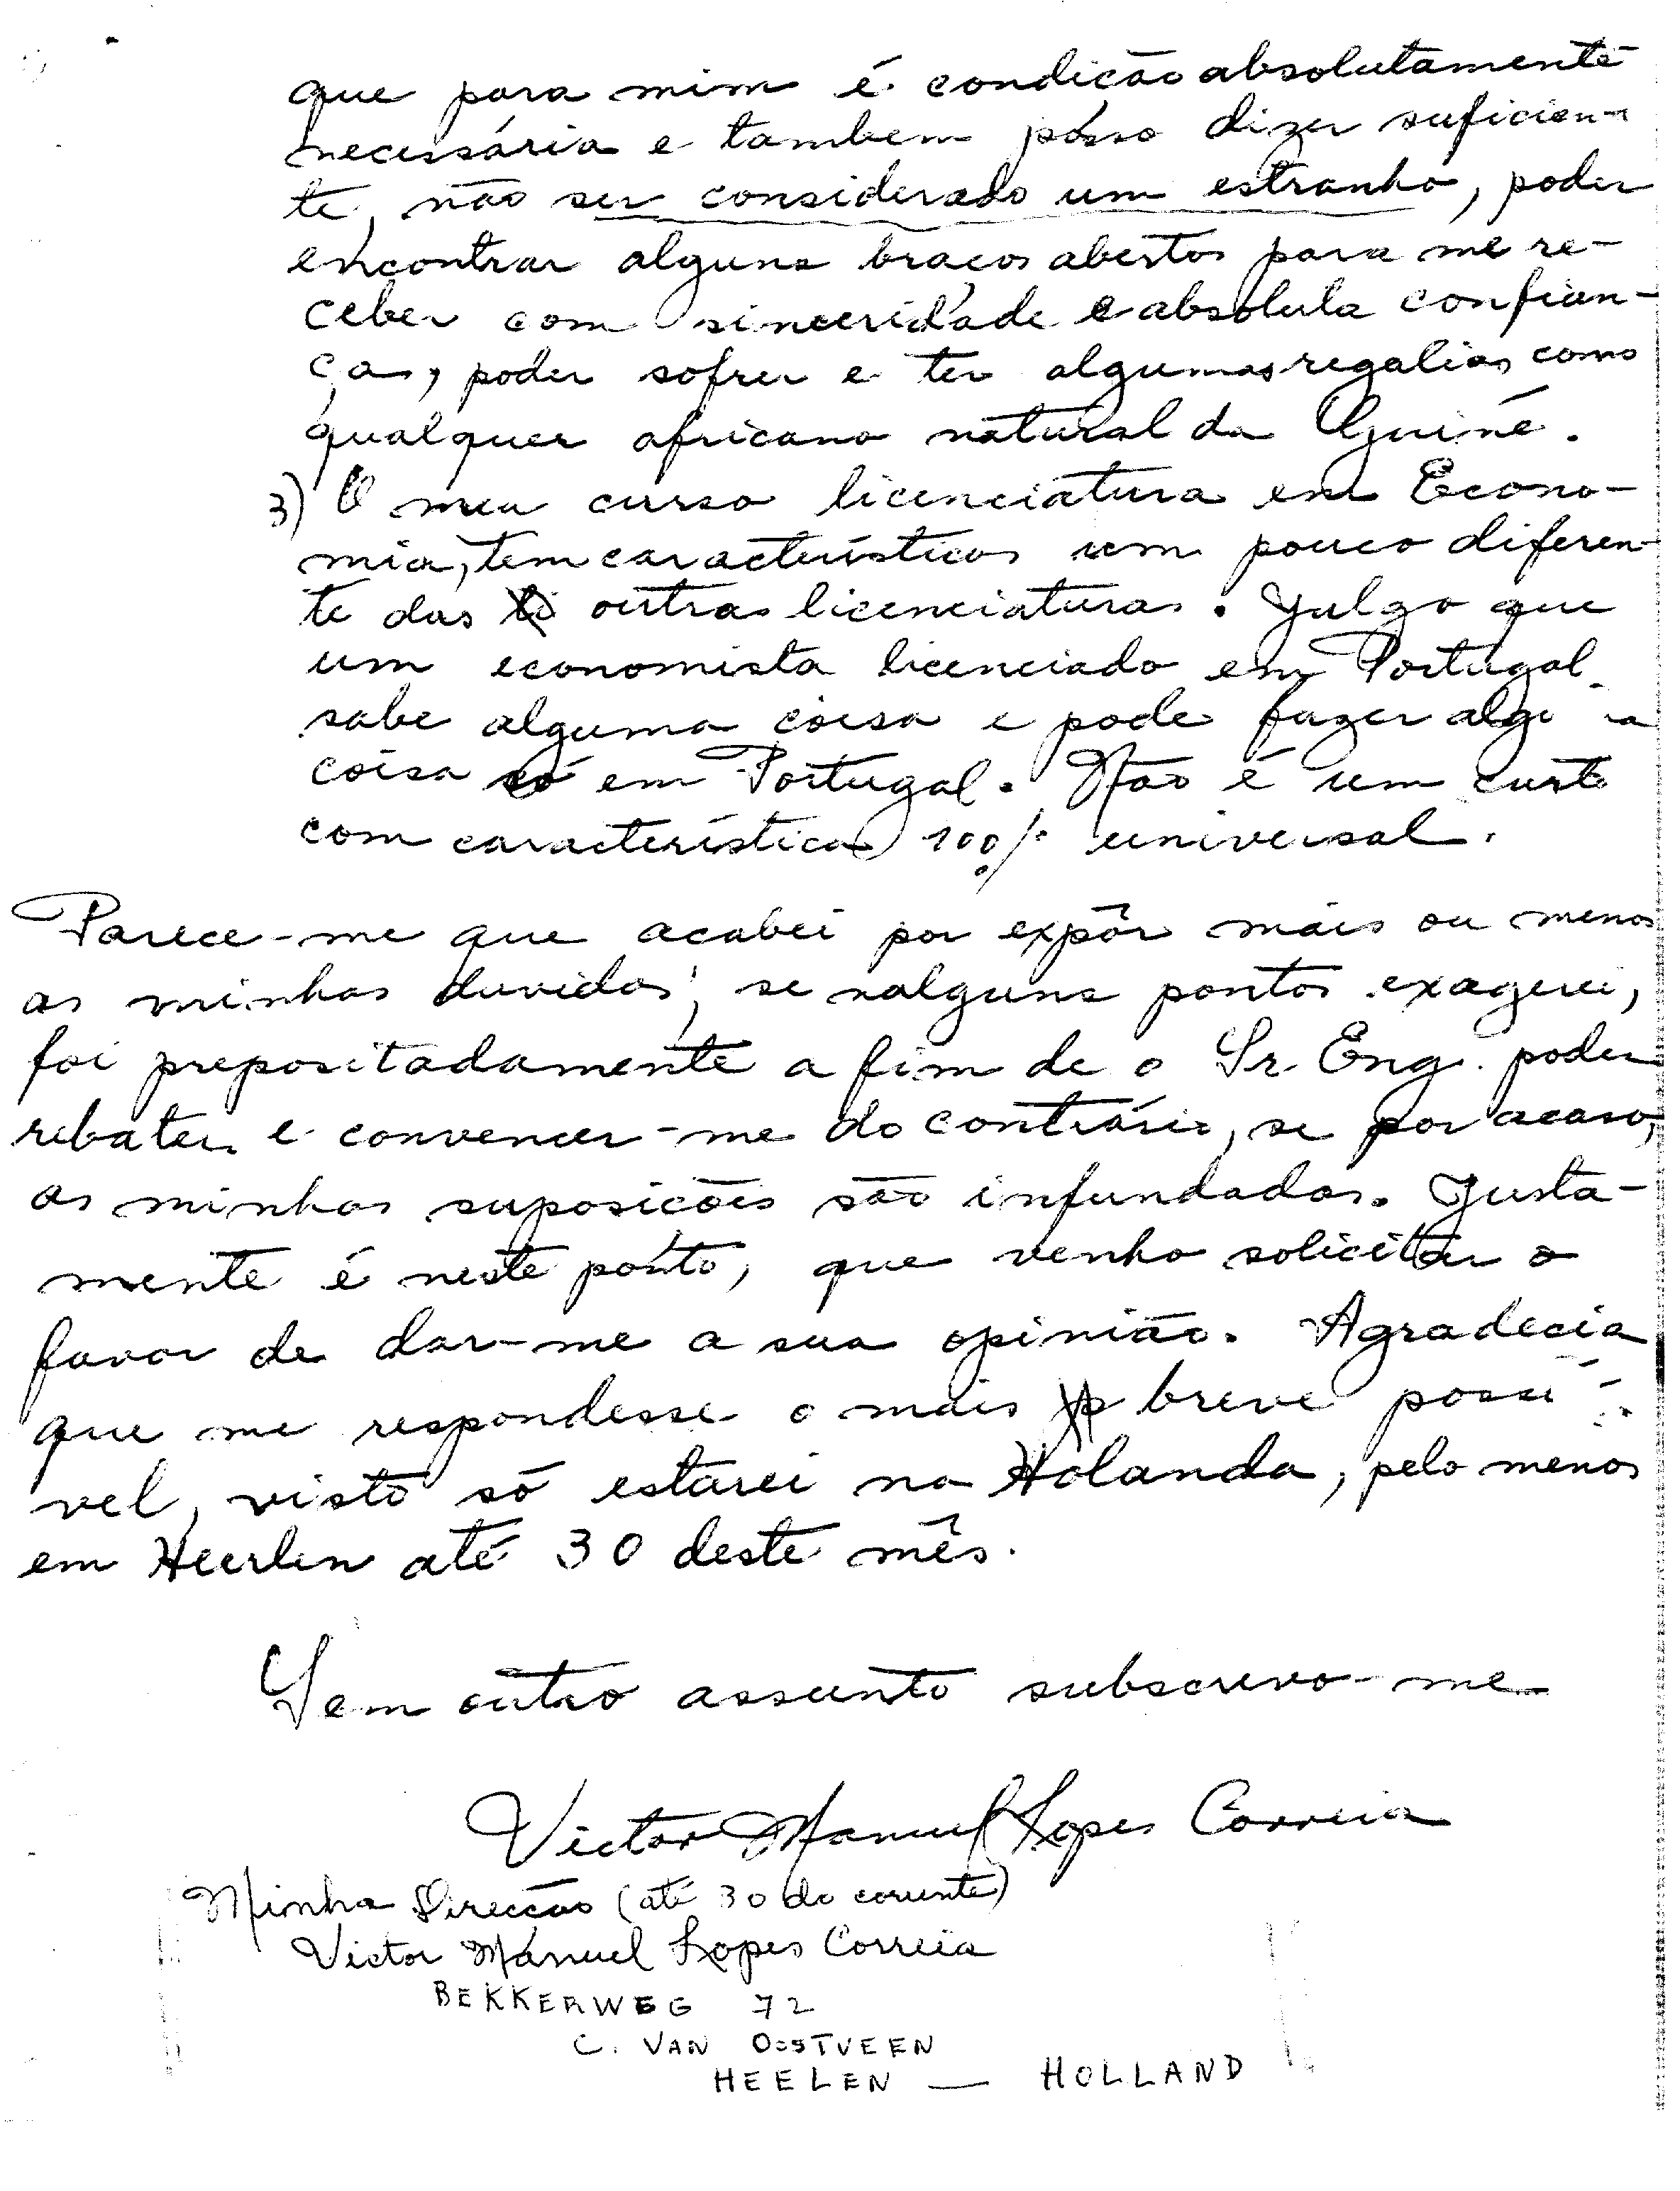 que para mim é condição absolutamente
necessária e tambem posso dizer suficien-
te, não ser considerado um estranho, poder
encontrar alguns braços abertos para me re-
ceber com sinceridade e absoluta confian-
ça, poder sofrer e ter algumas regalias como
qualquer africano natural da Guiné.
3) O meu curso licenciatura em Econo-
mia, tem características um pouco diferen-
te das outras licenciaturas. Julgo que
um economista licenciado em Portugal
sabe alguma coisa e pode fazer alg a
coisa só em Portugal. Não é um curso
com característica 100% universal.
Parece-me que acabei por expôr mais ou menos
as minhas duvidas; se nalguns pontos exagerei,
foi prepositadamente a fim de o Sr. Eng. poder
rebater e convencer-me do contrário, se por acaso,
as minhas suposições são infundadas. Justa-
mente é neste ponto, que venho solicitar o
favor de dar-me a sua opinião. Agradecia
que me respondesse o mais breve possí-
vel, visto só estarei na Holanda, pelo menos
em Heerlen até 30 deste mês.
Sem outro assunto subscrevo-me
Victor Manuel Lopes Correia
Minha Direcção (até 30 do corrente)
Victor Manuel Lopes Correia
BEKKERWEG 72
C. VAN OOSTVEEN
HEELEN — HOLLAND